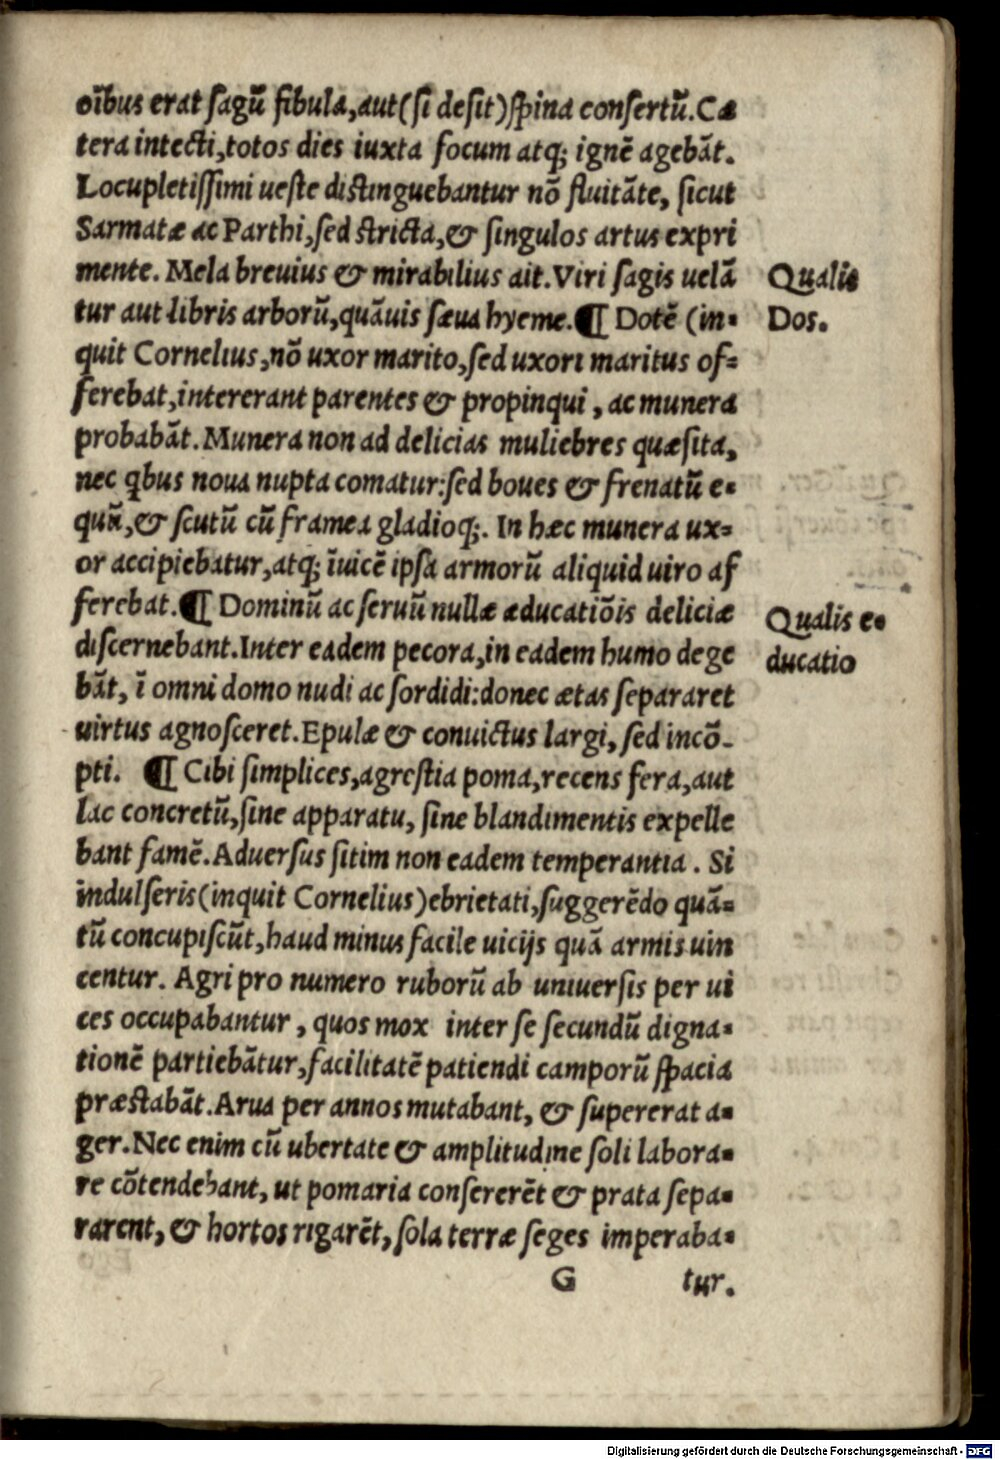 oı̃bus erat ſagũ fibula,aut(ſi deſit)ſpina conſertũ.Cæ
tera intecti,totos dies iuxta focum atq; ignẽ agebãt.
Locupletiſſimi ueſte diſtinguebantur nõ fluitãte, ſicut
Sarmatæ ac Parthi,ſed ſtricta,& ſingulos artus expri
mente. Mela breuius & mirabilius ait.Viri ſagis uelã
Qualis
tur aut libris arborũ,quãuis ſæua hyeme.¶ Dotẽ (in-
Dos.
quit Cornelius,nõ uxor marito,ſed uxori maritus of=
ferebat,intererant parentes & propinqui , ac munera
probabãt.Munera non ad delicias muliebres quæſita,
nec qbus noua nupta comatur:ſed boues & frenatũ e-
quũ,& ſcutũ cũ framea gladioq;. In hæc munera ux=
or accipiebatur,atq; ĩuicẽ ipſa armorũ aliquid uiro af
ferebat.¶ Dominũ ac ſeruũ nullæ æducatiõis deliciæ
Qualis e-
diſcernebant.Inter eadem pecora,in eadem humo dege
ducatio
bãt, ĩ omni domo nudi ac ſordidi:donec ætas ſepararet
uirtus agnoſceret.Epulæ & conuictus largi, ſed incõ-
pti. ¶ Cibi ſimplices,agreſtia poma,recens fera,aut
lac concretũ,ſine apparatu, ſine blandimentis expelle
bant famẽ.Aduerſus ſitim non eadem temperantia . Si
indulſeris(inquit Cornelius)ebrietati,ſuggerẽdo quã=
tũ concupiſcũt,haud minus facile uicijs quã armis uin
centur. Agri pro numero ruborũ ab uniuerſis per ui
ces occupabantur , quos mox inter ſe ſecundũ digna-
tionẽ partiebãtur,facilitatẽ patiendi camporũ ſpacia
præſtabãt.Arua per annos mutabant, & ſupererat a-
ger.Nec enim cũ ubertate & amplitudine ſoli labora-
re cõtendebant, ut pomaria conſererẽt & prata ſepa-
rarent, & hortos rigarẽt, ſola terræ ſeges imperaba-
G tur.
Digitalisierung gefördert durch die Deutsche Forschungsgemeinschaft - DFG